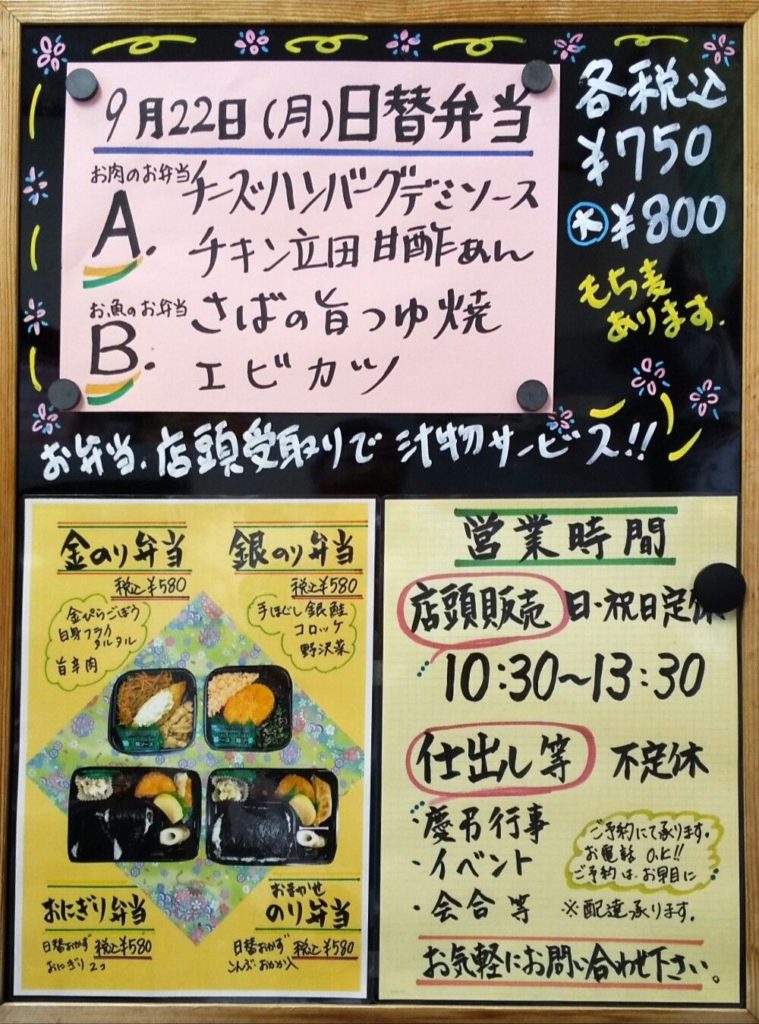 9月22日(月)日替弁当
お肉のお弁当
A.
チーズハンバーグデミソース
チキン立田甘酢あん
お魚のお弁当
B.
さばの旨つゆ焼
エビカツ
各税込
¥750
大¥800
もち麦
あります.
お弁当、店頭受取りで 汁物サービス!!
金のり弁当
税込¥580
金ぴらごぼう
白身フライ
タルタル
旨辛肉
銀のり弁当
税込¥580
手ほぐし銀鮭
コロッケ
野沢菜
おにぎり弁当
日替おかず 税込¥580
おにぎり2コ
おまかせ
のり弁当
日替おかず 税込¥580
こんぶ・おかか入
営業時間
店頭販売 日・祝日定休
10:30〜13:30
仕出し等 不定休
・慶弔行事
・イベント
・会合等
ご予約にて承ります。
お電話 OK!!
ご予約は、お早目に
※配達承ります。
お気軽にお問い合わせ下さい。